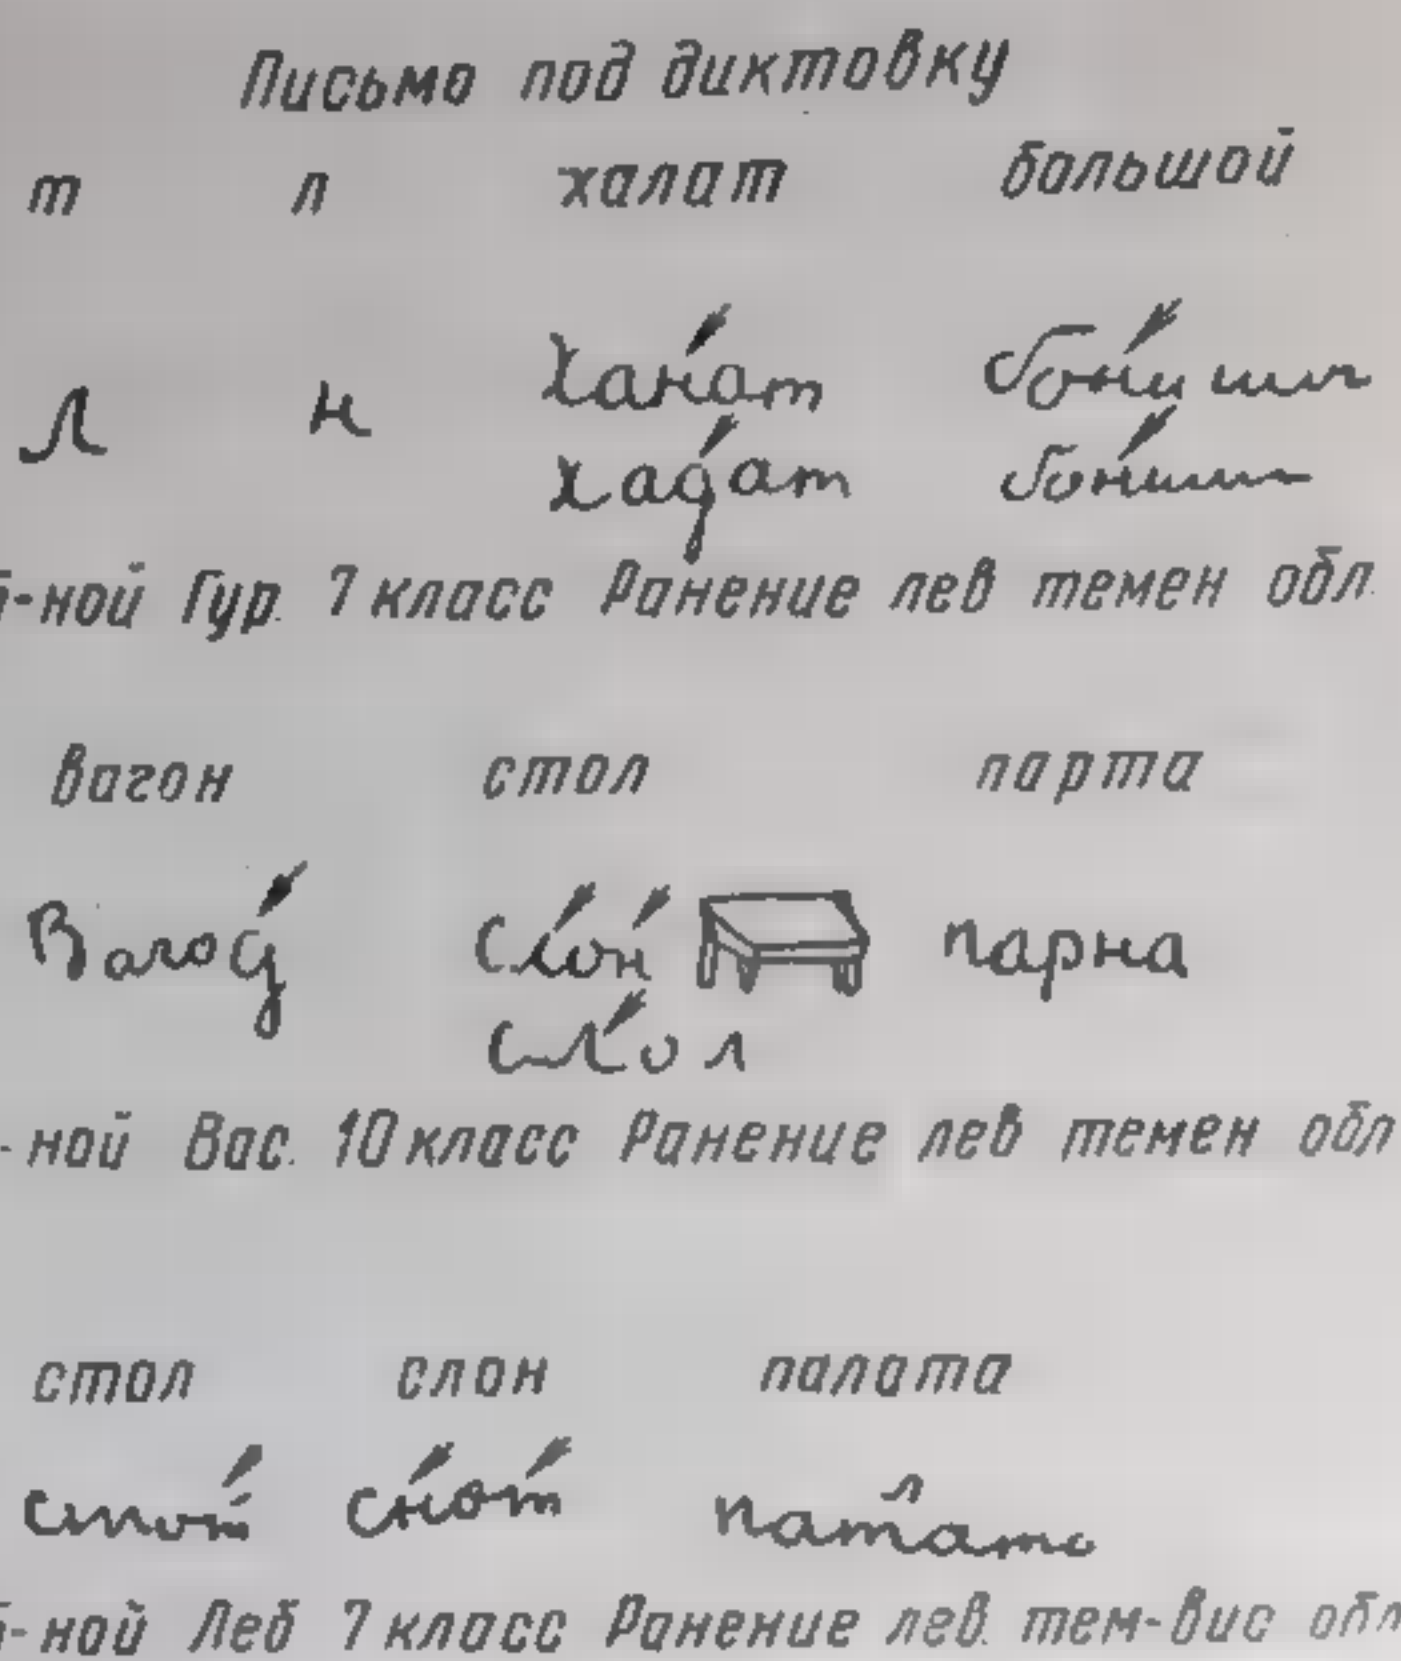 Письмо под диктовку
т л халат большой
л н Ханат бонишь
хадат
б-ной Гур. 7 класс Ранение лев темен обл.
вагон стол парта
Вагод слон парна
слол
-ной Вас. 10 класс Ранение лев темен обл
стол слон палата
стот снот патата
л
б-ной Леб 7 класс Ранение лев. тем-вис обл